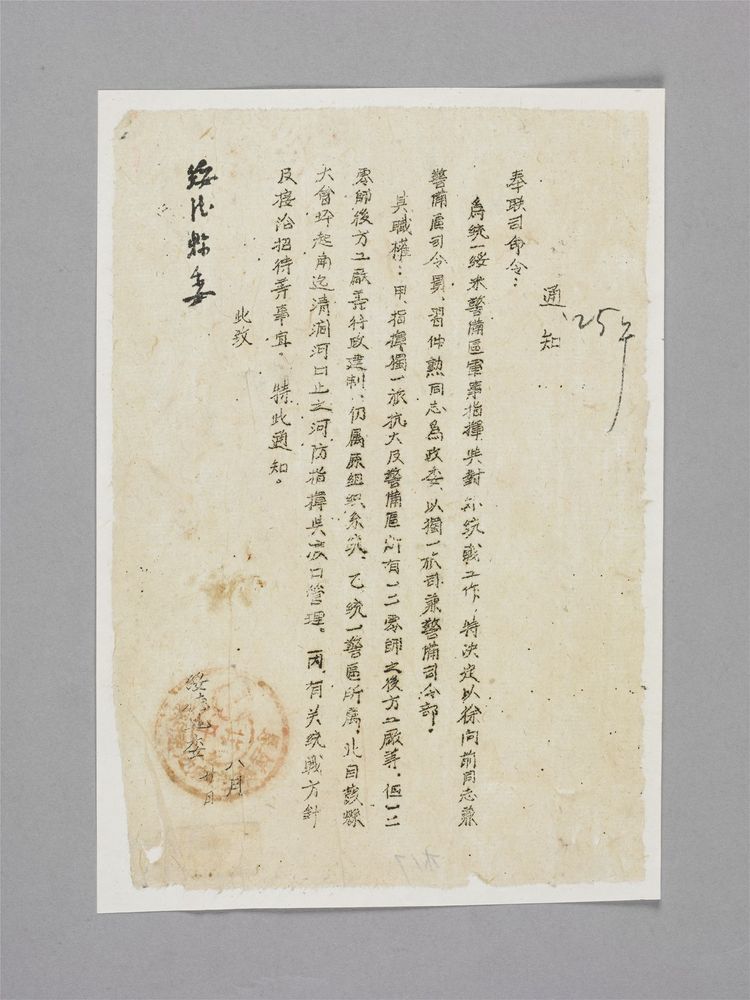 25年
通知
奉联司命令：
為統一綏米警備區軍事指揮與對外統戰工作，特決定以徐向前同志兼
警備區司令員、習仲勲同志為政委、以獨一旅司兼警備司令部。
其職權：甲、指揮獨一旅抗大及警備區所有一二零師之後方工廠等。但一二
零師後方工廠等行政建制、仍属原組织系统、乙统一警區所属、北自葭縣
大會坪起南迄清澗河口止之河防指揮與渡口管理。丙、有关统戰方針
及接洽招待等事宜。特此通知。
此致
綏德縣委
綏德地委
八月
廿日